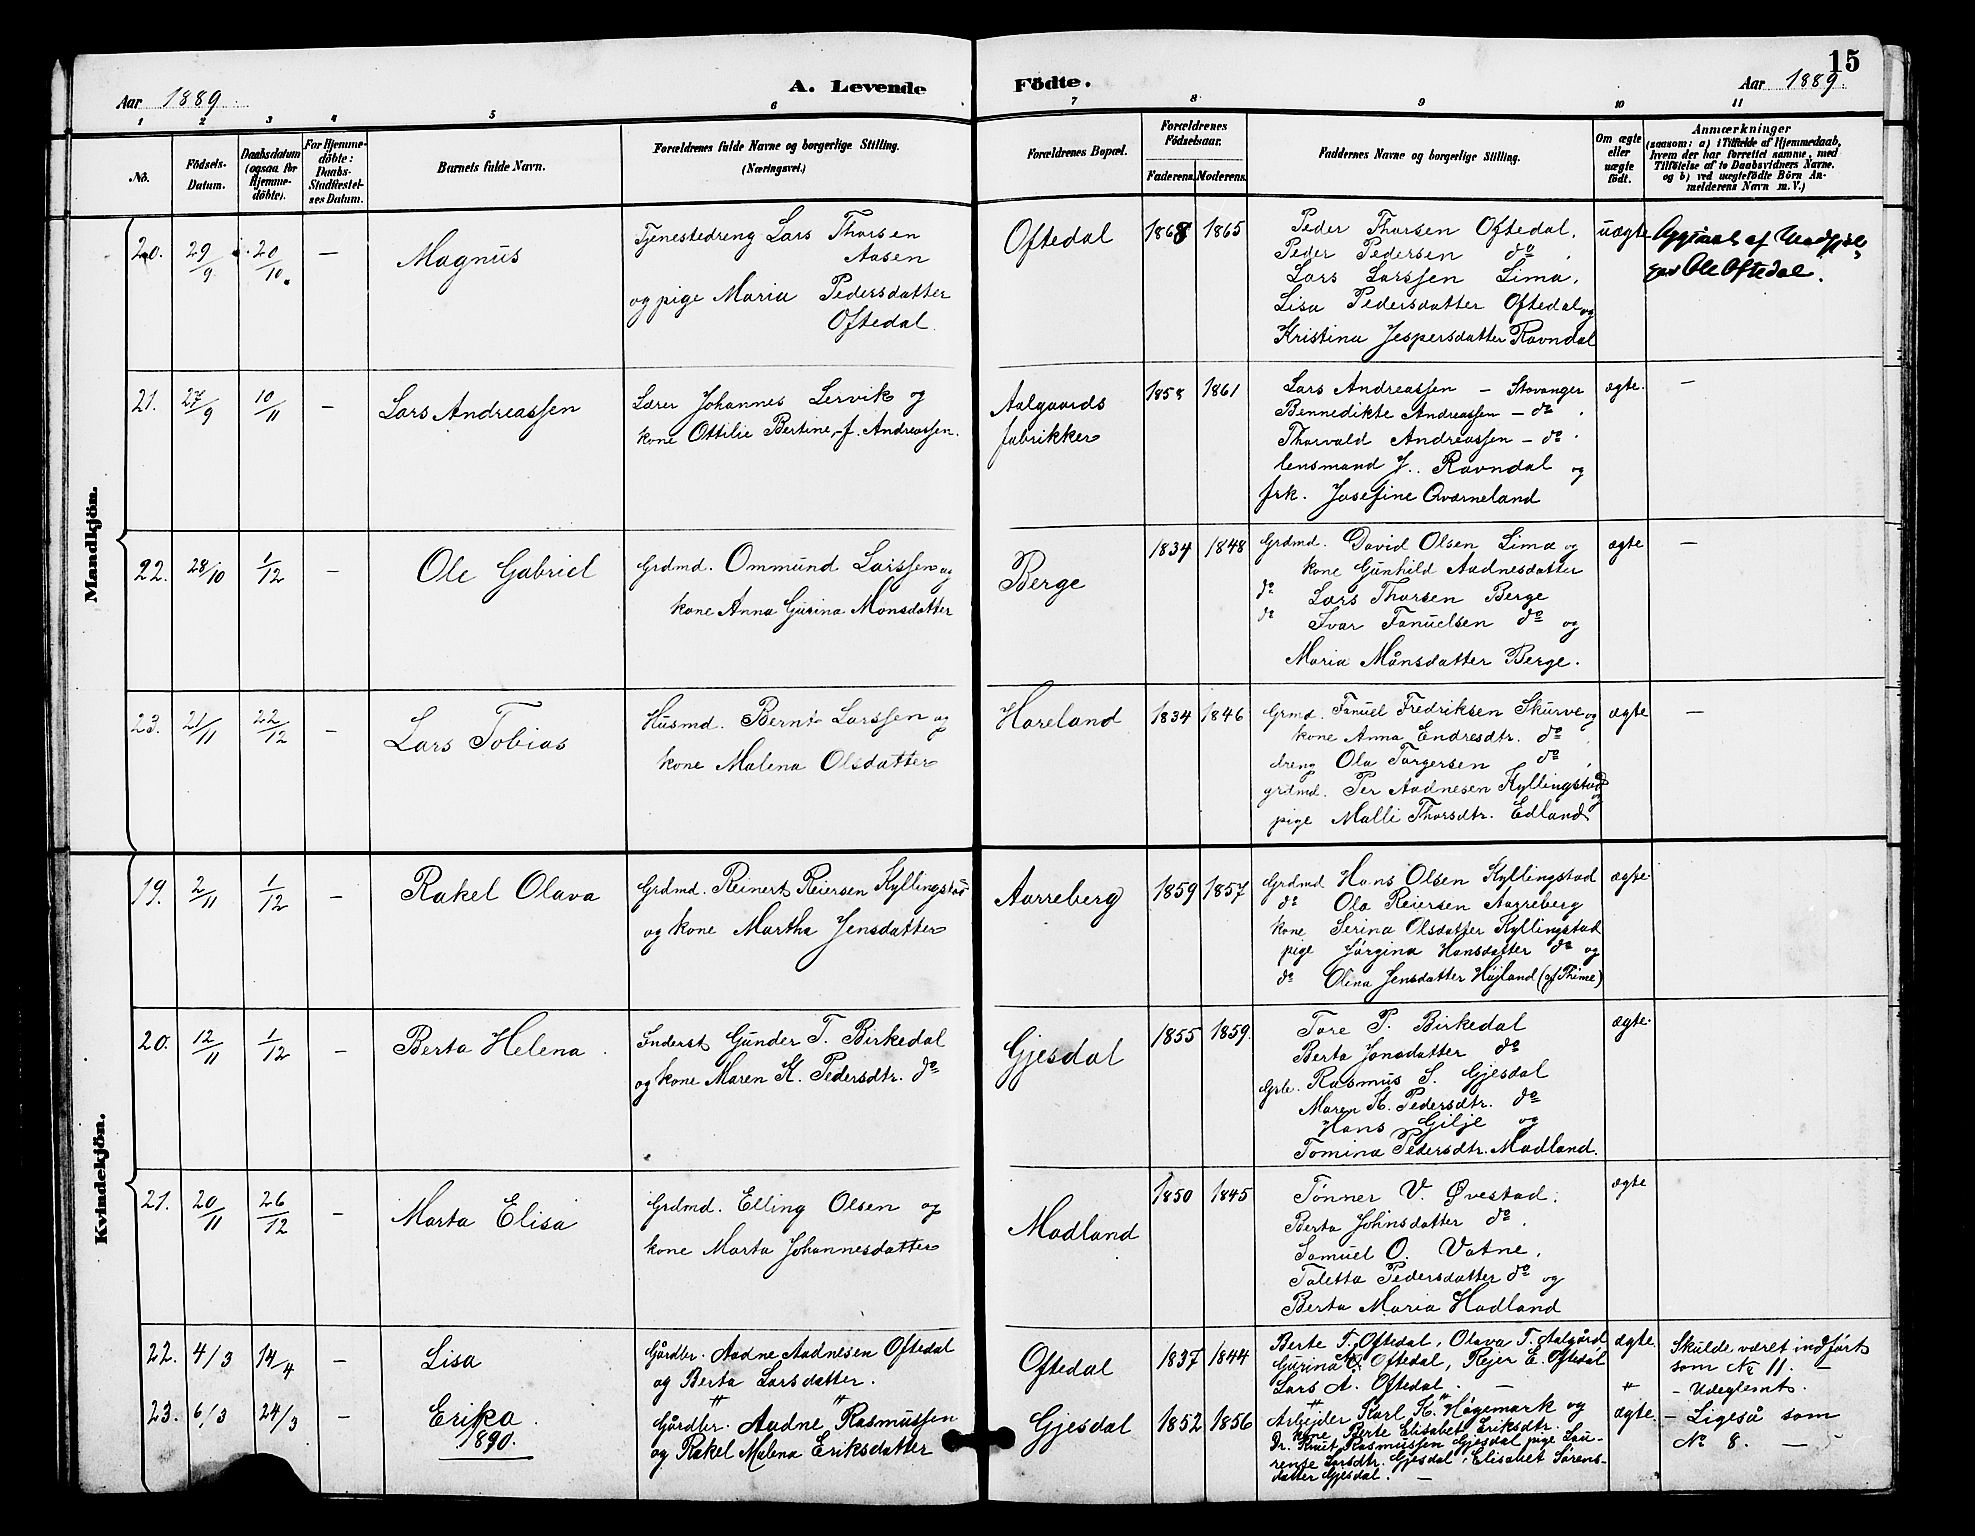 15
Aar 1889.
A. Levende
Födte.
Aar 1889.
1 2 3 4 5 6 7 8 9 10 11
No.
Födsels-
Datum.
Daabsdatum
(ogsaa for
Hjemme-
döbte).
For Hjemme-
döbte:
Daabs-
Stadfæstel-
ses Datum.
Barnets fulde Navn.
Forældrenes fulde Navne og borgerlige Stilling.
(Næringsvei.)
Forældrenes Bopæl.
Forældrenes
Födselsaar.
Faderens. Moderens.
Faddernes Navne og borgerlige Stilling.
Om ægte
eller
uægte
födt.
Anmærkninger
(saasom: a) i Tilfælde af Hjemmedaab,
hvem der har forrettet samme, med
Tilföielse af to Daabsvidners Navne.
og b) ved uægtefödte Börn An-
melderens Navn m. V.)
Mandkjön.
20. 29/9 20/10. — Magnus
Tjenestedreng Lars Thorsen
Aasen
og pige Maria Pedersdatter
Oftedal.
Oftedal 1868 1865
Peder Thorsen Oftedal.
Peder Pedersen do
Lars Larssen Lima.
Lisa Pedersdatter Oftedal og
Kristina Jespersdatter Ravndal
uægte
Ole Oftedal.
21. 27/9 10/11 — Lars Andreassen
Lærer Johannes Lervik og
kone Ottilie Bertine, f. Andreassen.
Aalgaards
fabrikker
1858 1861
Lars Andreassen — Stavanger
Bennedikte Andreassen — do.
Thorvald Andreassen — do.
lensmand J. Ravndal og
frk. Josefine Qværneland
ægte. —
22. 28/10 1/12 — Ole Gabriel
Grdmd. Ommund Larssen og
kone Anna Gurina Monsdatter
Berge 1834 1848
Grdmd. David Olsen Lima og
kone Gunhild Aadnesdatter
do Lars Thorsen Berge
do Ivar Tanuelsen do og
Maria Månsdatter Berge.
ægte —
23. 21/11 22/12 — Lars Tobias
Husmd. Bernt Larssen og
kone Malena Olsdatter
Hareland 1834 1846
Grmd. Tanuel Fredriksen Skurve og
kone Anna Endresdtr. do
dreng Ola Torgersen do
grdmd. Per Aadnesen Kyllingstad
og
pige Malli Thorsdtr. Edland
ægte —
Kvindekjön.
19. 2/11 1/12 — Rakel Olava
Grdmd. Reinert Reiersen Kyllingstad
og kone Martha Jensdatter
Aarreberg 1859 1857
Grdmd Hans Olsen Kyllingstad
do Ola Reiersen Aarreberg
kone Serina Olsdatter Kyllingstad
pige Jørgina Hansdatter do og
do Olina Jensdatter Højland (af Thime)
ægte
20. 12/11 1/12 — Berta Helena.
Inderst Gunder T. Birkedal
og kone Maren K. Pedersdtr. do
Gjesdal 1855 1859.
Tore P. Birkedal
Berta Jonsdatter do
Grbr. Rasmus S. Gjesdal
Maren K. Pedersdtr. do
Hans Gilje og
Tomina Pedersdtr. Madland.
ægte.
21. 20/11 26/12 — Marta Elisa
Grdmd. Elling Olsen og
kone Marta Johannesdatter
Madland 1850 1845
Tønner V. Øvestad.
Berta Johnsdatter do.
Samuel O. Vatne.
Taletta Pedersdatter do og
Berta Maria Hadland
ægte
22. 4/3 14/4 — Lisa
Gårdbr. Aadne Aadnesen Oftedal
og Berta Larsdatter.
Oftedal 1837 1844
Berte T. Oftedal, Olava T. Aalgård
Gurina Oftedal, Rejer E. Oftedal
Lars A. Oftedal. —
ægte.
Skulde været indført
som No 11. —
- Udeglemt.
23. 6/3 24/3 — Erika.
1890.
Gårdbr. Aadne Rasmussen
og Rakel Malena Eriksdatter
Gjesdal 1852 1856
Arbejder Karl K. Høgemark og
kone Berte Elisabet Eriksdtr.
Dr. Knut Rasmussen Gjesdal, pige Lau-
rense Larsdtr. Gjesdal, Elisabet Sørens-
datter Gjesdal. —
ægte.
- Ligeså som
No 8. —